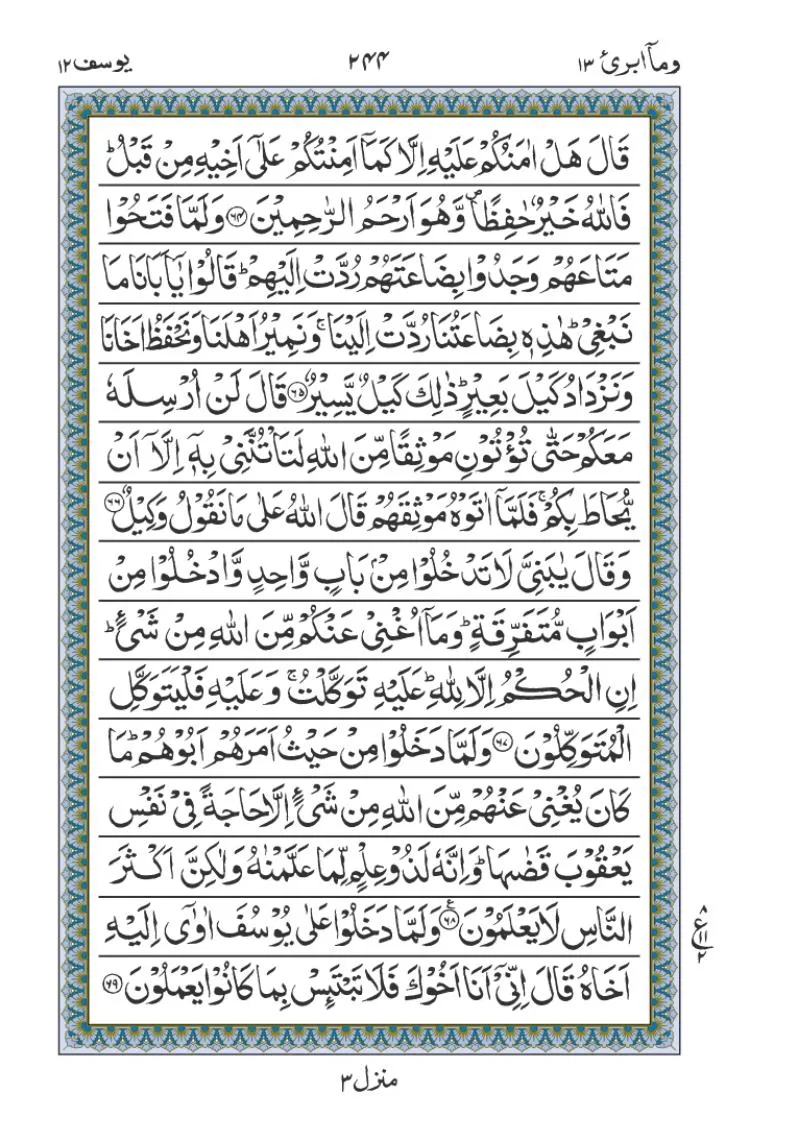 ومآ ابرئ ١٣
٢٤٤
يوسف ١٢
قَالَ هَلْ اٰمَنُكُمْ عَلَيْهِ اِلَّا كَمَاۤ اَمِنْتُكُمْ عَلٰۤى اَخِيْهِ مِنْ قَبْلُ ؕ
فَاللّٰهُ خَيْرٌ حٰفِظًا ۪ وَّهُوَ اَرْحَمُ الرّٰحِمِيْنَ ﴿۶۴﴾ وَلَمَّا فَتَحُوْا
مَتَاعَهُمْ وَجَدُوْا بِضَاعَتَهُمْ رُدَّتْ اِلَيْهِمْ ؕ قَالُوْا يٰۤاَبَانَا مَا
نَبْغِيْ ؕ هٰذِهٖ بِضَاعَتُنَا رُدَّتْ اِلَيْنَا ۚ وَنَمِيْرُ اَهْلَنَا وَنَحْفَظُ اَخَانَا
وَنَزْدَادُ كَيْلَ بَعِيْرٍ ؕ ذٰلِكَ كَيْلٌ يَّسِيْرٌ ﴿۶۵﴾ قَالَ لَنْ اُرْسِلَهٗ
مَعَكُمْ حَتّٰى تُؤْتُوْنِ مَوْثِقًا مِّنَ اللّٰهِ لَتَاْتُنَّنِيْ بِهٖۤ اِلَّاۤ اَنْ
يُّحَاطَ بِكُمْ ۚ فَلَمَّاۤ اٰتَوْهُ مَوْثِقَهُمْ قَالَ اللّٰهُ عَلٰى مَا نَقُوْلُ وَكِيْلٌ ﴿۶۶﴾
وَقَالَ يٰبَنِيَّ لَا تَدْخُلُوْا مِنْۢ بَابٍ وَّاحِدٍ وَّادْخُلُوْا مِنْ
اَبْوَابٍ مُّتَفَرِّقَةٍ ؕ وَمَاۤ اُغْنِيْ عَنْكُمْ مِّنَ اللّٰهِ مِنْ شَيْءٍ ؕ
اِنِ الْحُكْمُ اِلَّا لِلّٰهِ ؕ عَلَيْهِ تَوَكَّلْتُ ۚ وَعَلَيْهِ فَلْيَتَوَكَّلِ
الْمُتَوَكِّلُوْنَ ﴿۶۷﴾ وَلَمَّا دَخَلُوْا مِنْ حَيْثُ اَمَرَهُمْ اَبُوْهُمْ ؕ مَا
كَانَ يُغْنِيْ عَنْهُمْ مِّنَ اللّٰهِ مِنْ شَيْءٍ اِلَّا حَاجَةً فِيْ نَفْسِ
يَعْقُوْبَ قَضٰىهَا ؕ وَاِنَّهٗ لَذُوْ عِلْمٍ لِّمَا عَلَّمْنٰهُ وَلٰكِنَّ اَكْثَرَ
النَّاسِ لَا يَعْلَمُوْنَ ﴿۶۸﴾ ع وَلَمَّا دَخَلُوْا عَلٰى يُوْسُفَ اٰوٰۤى اِلَيْهِ
اَخَاهُ قَالَ اِنِّيْۤ اَنَا اَخُوْكَ فَلَا تَبْتَئِسْ بِمَا كَانُوْا يَعْمَلُوْنَ ﴿۶۹﴾
٨
ع ١١
٢
منزل ٣